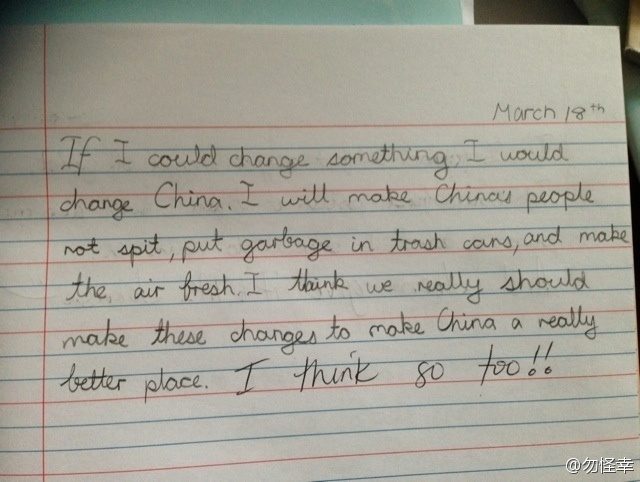 March 18th
If I could change something, I would
change China. I will make China's people
not spit, put garbage in trash cans, and make
the air fresh. I think we really should
make these changes to make China a really
better place. I think so too!!
@勿怪幸